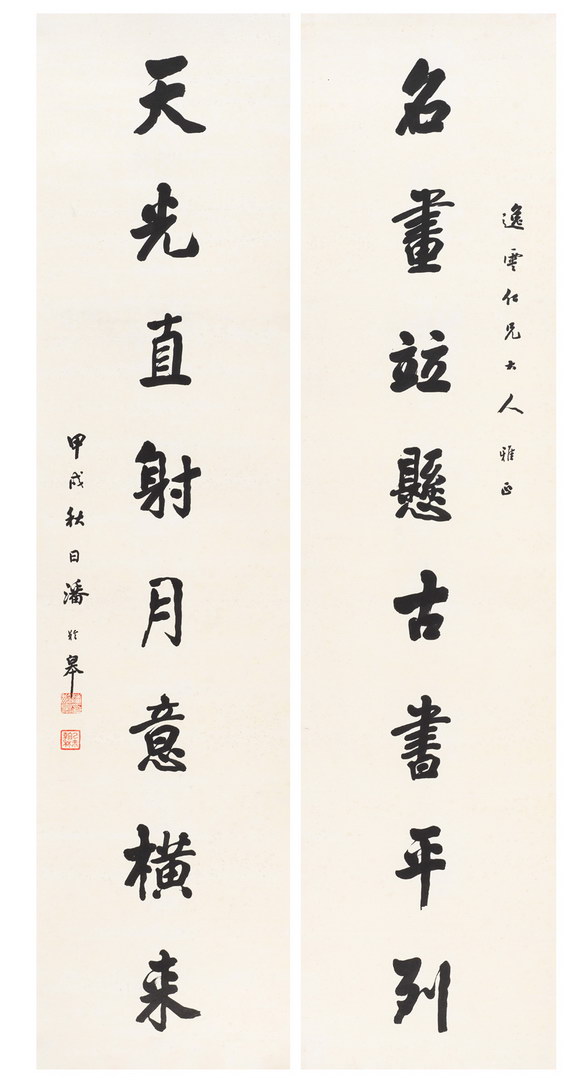 逸雲仁兄大人雅正
名畫竝懸古書平列
天光直射月意橫来
甲戌秋日潘齡皋